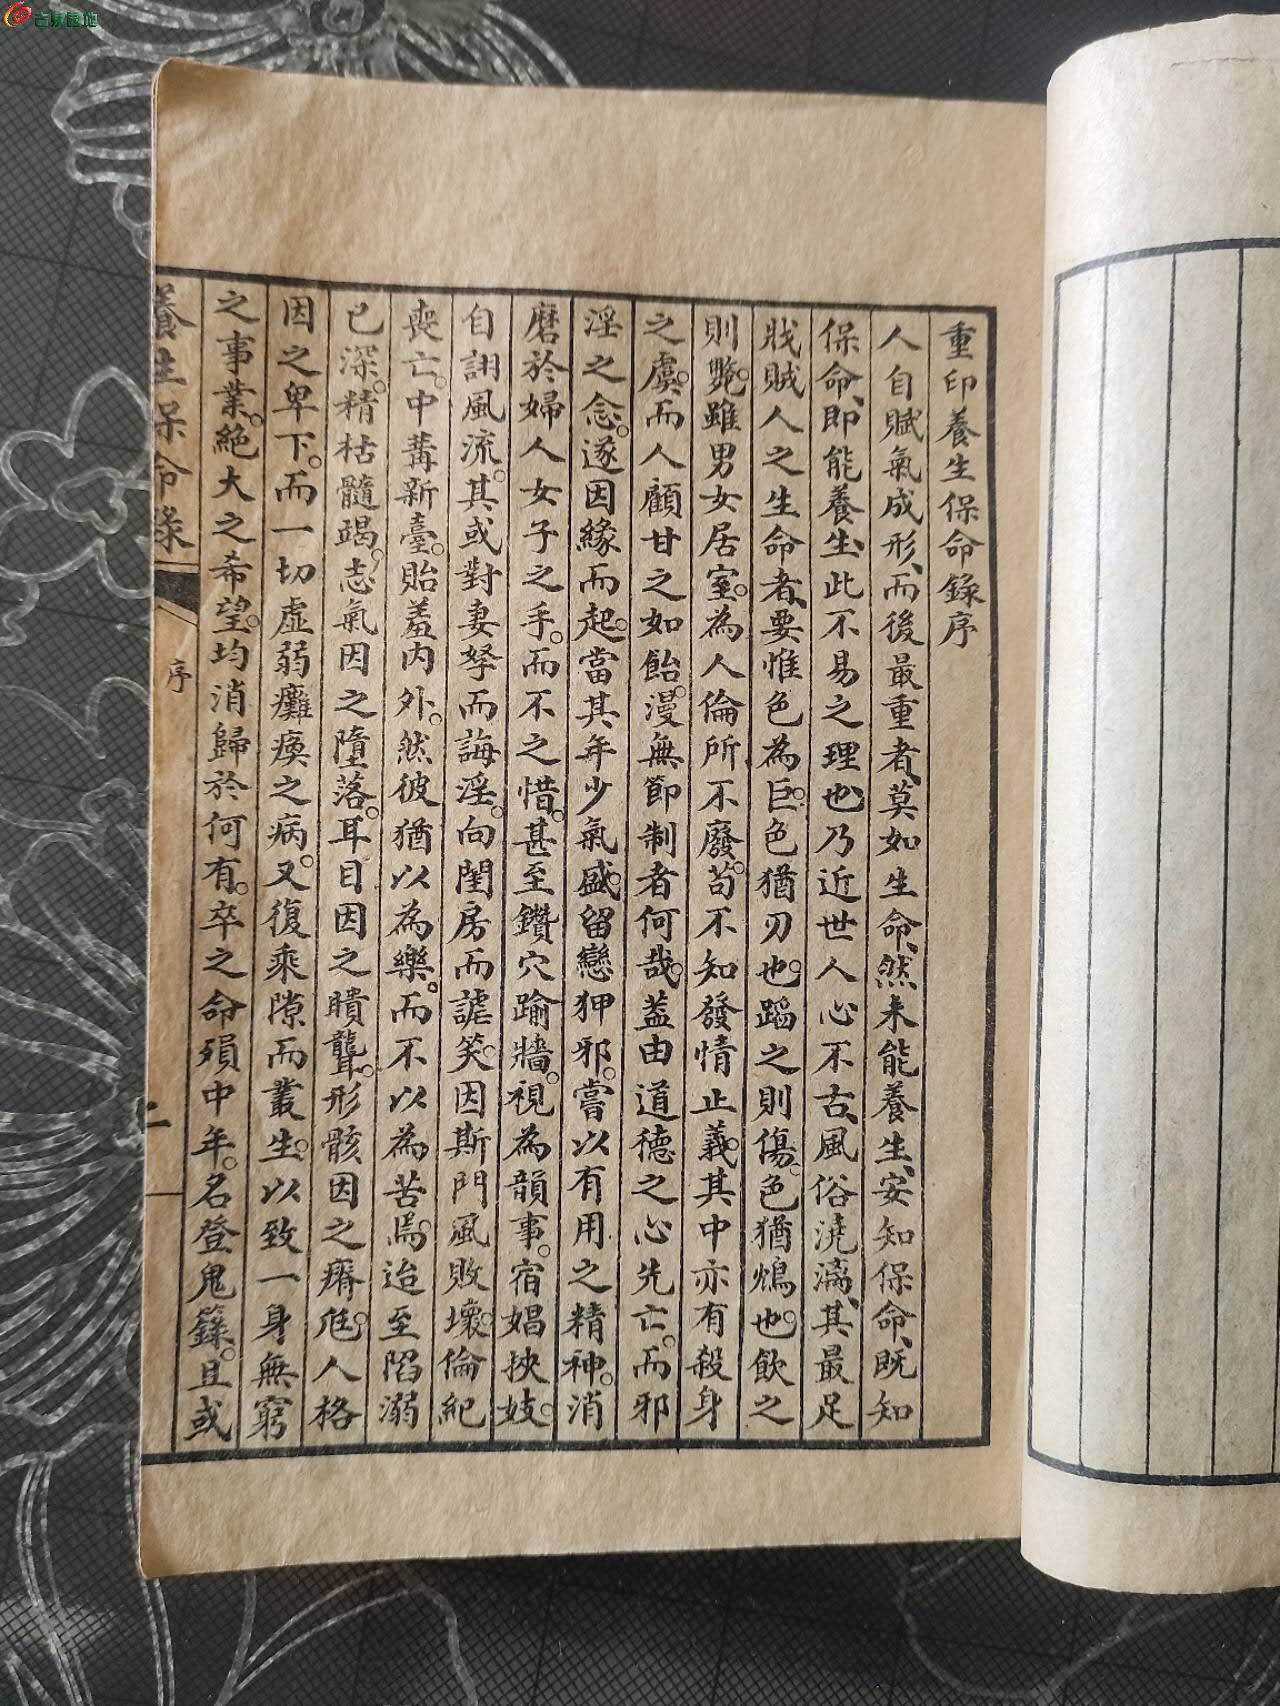 古泉园地
重印養生保命錄序
人自賦氣成形、而後最重者、莫如生命、然未能養生、安知保命、既知
保命、即能養生、此不易之理也、乃近世人心不古、風俗澆漓、其最足
戕賊人之生命者、要惟色為巨。色猶刃也。蹈之則傷。色猶鴆也。飲之
則斃。雖男女居室。為人倫所不廢。苟不知發情止義。其中亦有殺身
之虞。而人顧甘之如飴。漫無節制者何哉。蓋由道德之心先亡。而邪
淫之念。遂因緣而起。當其年少氣盛。留戀狎邪。嘗以有用之精神。消
磨於婦人女子之手。而不之惜。甚至鑽穴踰牆。視為韻事。宿娼挾妓。
自詡風流。其或對妻孥而誨淫。向閨房而謔笑。因斯門風敗壞。倫紀
喪亡。中冓新臺。貽羞內外。然彼猶以為樂。而不以為苦焉。迨至陷溺
已深。精枯髓竭。志氣因之墮落。耳目因之瞶聾。形骸因之瘠尫。人格
因之卑下。而一切虛弱癱瘓之病。又復乘隙而叢生。以致一身無窮
之事業。絕大之希望。均消歸於何有。卒之命殞中年。名登鬼籙。且或
養生保命錄
序
一